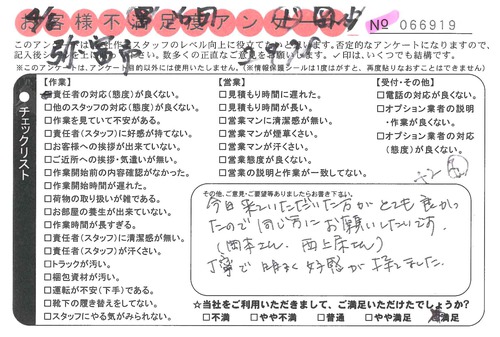 お客様不満足度アンケート
№ 066919
このアンケートは
スタッフのレベル向上に役立てたいと思います。否定的なアンケートになりますので、
※このアンケートは、アンケート目的以外には使用いたしません。(※情報保護シールは1度はがすと、再度貼りなおすことはできません)
チェックリスト
【作業】
責任者の対応(態度)が良くない。
□他のスタッフの対応(態度)が良くない。
□作業を見ていて不安がある。
□責任者(スタッフ)に好感が持てない。
□お客様への挨拶が出来ていない。
□ご近所への挨拶・気遣いが無い。
□作業開始前の内容確認がなかった。
□作業開始時間が遅れた。
□荷物の取り扱いが雑である。
□お部屋の養生が出来ていない。
□作業時間が長すぎる。
□責任者(スタッフ)に清潔感が無い。
□責任者(スタッフ)が汗くさい。
□トラックが汚い。
□梱包資材が汚い。
□運転が不安(下手)である。
□靴下の履き替えをしてない。
□スタッフにやる気がみられない。
【営業】
□見積もり時間に遅れた。
□見積もり時間が長い。
□営業マンに清潔感が無い。
□営業マンが煙草くさい。
□営業マンが汗くさい。
□営業態度が良くない。
□営業の説明と作業が一致してない。
【受付・その他】
□電話の対応が良くない。
□オプション業者の説明
・作業が良くない。
□オプション業者の対応
(態度)が良くない。
その他、ご意見・ご要望等ありましたらお書き下さい。
今日来ていただいた方がとても良かっ
たので同じ方にお願いしたいです。
(岡本さん、西上床さん)
丁寧で明るく好感が持てました。
☆当社をご利用いただきまして、ご満足いただけたでしょうか?
□不満 □やや不満 □普通 □やや満足 満足